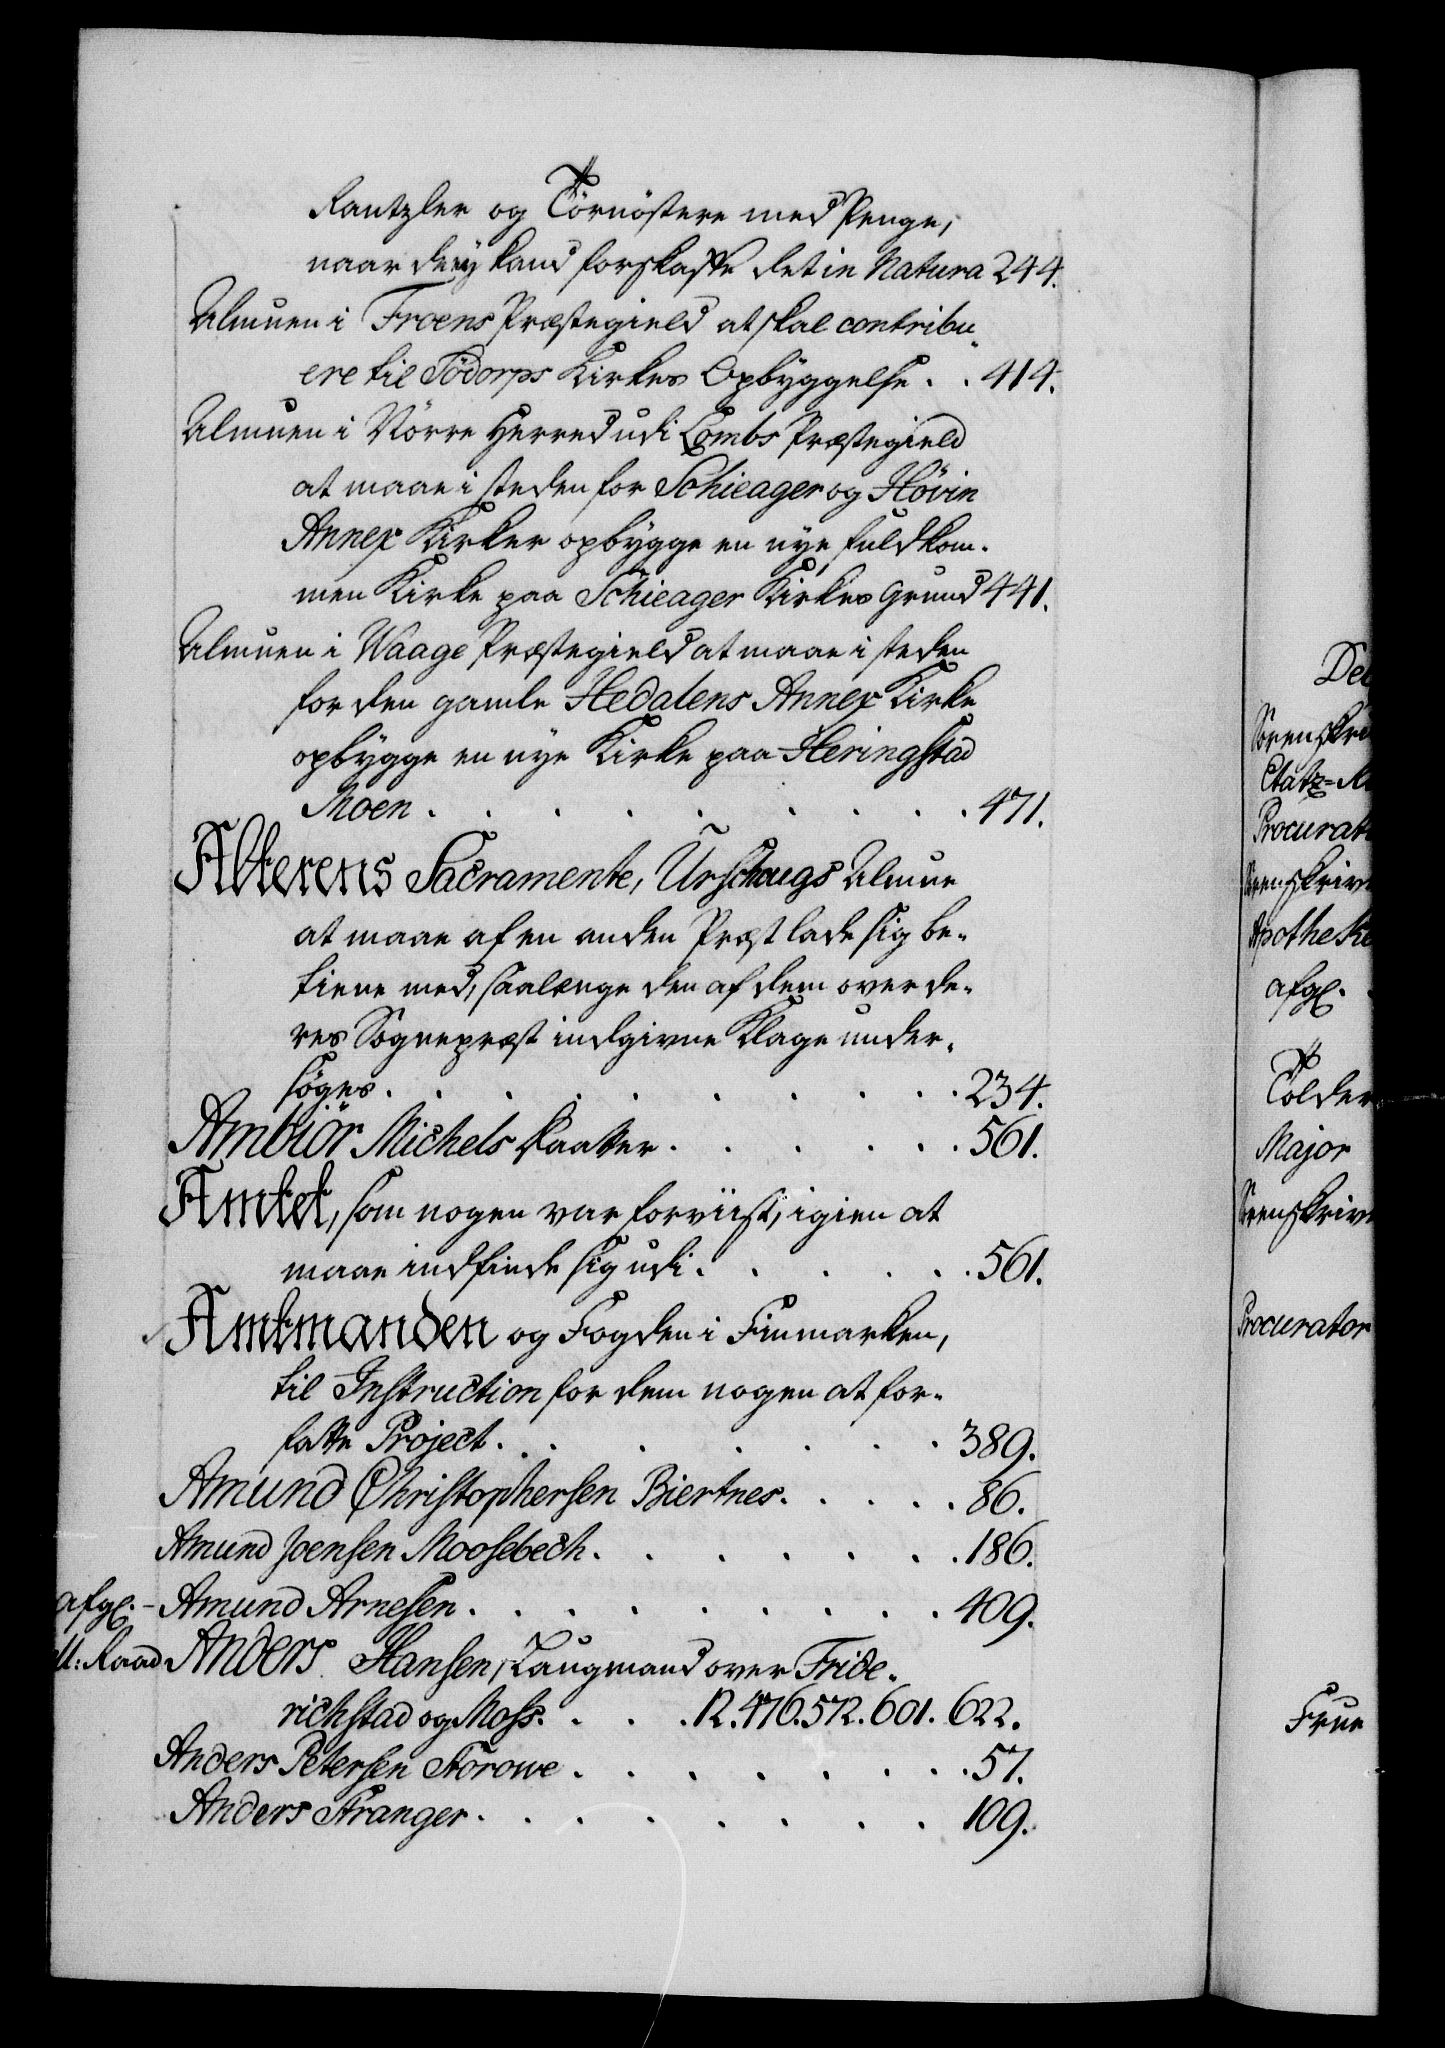 Rantzler og Törnöstere med Penge,
naar de ey kand forskaffe det in Natura 244.
Almuen i Froens Præstegield at skal contribu-
ere til Södorps Kirkes Opbyggelse . . 414.
Almuen i Nörre Herred udi Lombs Præstegield
at maae i steden for Schieager og Hövin
Annex Kirker opbygge en nye fuldkom-
men Kirke paa Schieager Kirkes Grund 441.
Almuen i Waage Præstegield at maae i steden
for den gamle Hedalens Annex Kirke
opbygge en nye Kirke paa Heringstad
Moen . . . . . . . . . 471.
Alterens Sacramente, Urschougs Almue
at maae af en anden Præst lade sig be-
tiene med, saalænge den af dem over de-
res Sognepræst indgivne Klage under-
söges . . . . . . . . . 234.
Ambiör Michels Daatter . . . . . . 561.
Amtet, som nogen var forviist, igien at
maae indfinde sig udi . . . . . . 561.
Amtmanden og Fogden i Finmarken,
til Instruction for dem nogen at for-
fatte Project . . . . . . . 389.
Amund Christophersen Biertnes . . . . . 86.
Amund Joensen Moosebech . . . . . . . 186.
afg. - Amund Arnesen . . . . . . . . . 409.
Raad Anders Hansen, Laugmand over Fride-
richstad og Moss . . . . 12. 476. 572. 601. 622.
Anders Petersen Storowe . . . . . . . . 57.
Anders Stranger . . . . . . . . 109.
Sorenskri
Etatz-
Procurat
Apotheke
afg.
Tolder
Major
Procurator
Frue